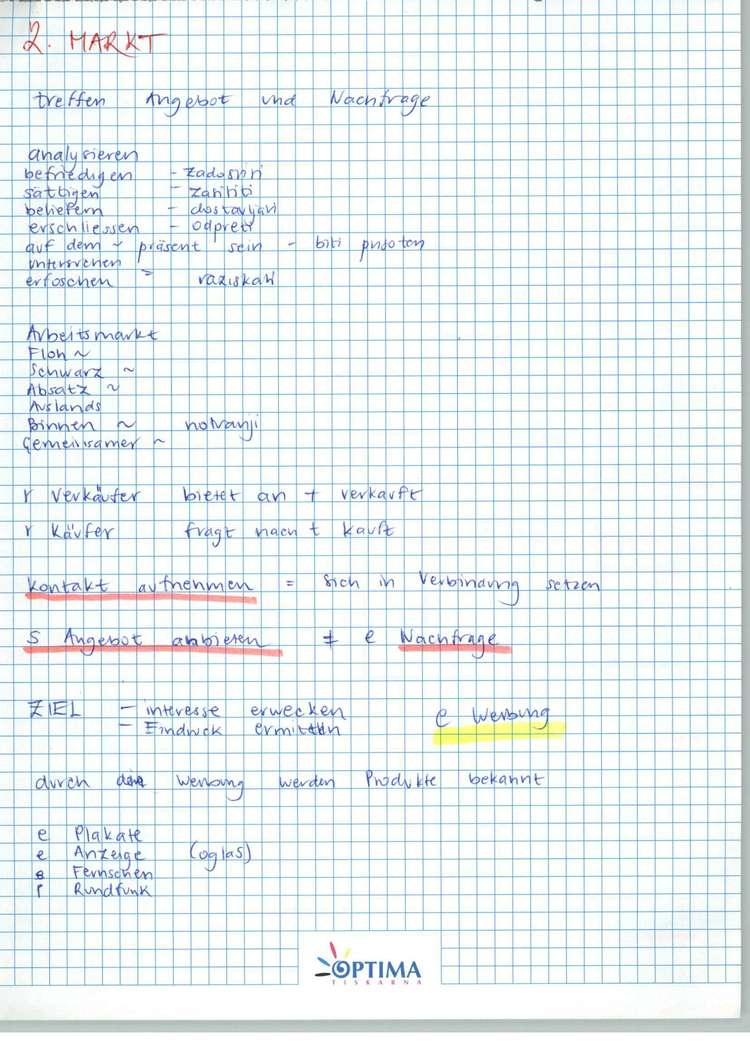 2. MARKT
treffen Angebot und Nachfrage
analysieren
befriedigen - zadostiti
sättigen - zasititi
beliefern - dostavljati
erschliessen - odpreti
auf dem ~ präsent sein - biti prisoten
untersuchen
erfoschen = raziskati
Arbeitsmarkt
Floh ~
Schwarz ~
Absatz ~
Auslands
Binnen ~ notranji
Gemeinsamer ~
r Verkäufer bietet an + verkauft
r Käufer fragt nach + kauft
Kontakt aufnehmen = sich in Verbindung setzen
s Angebot anbieten ≠ e Nachfrage
ZIEL - interesse erwecken e Werbung
- Eindruck ermitteln
durch die Werbung werden Produkte bekannt
e Plakate
e Anzeige (oglas)
s Fernsehen
r Rundfunk
OPTIMA
TISKARNA